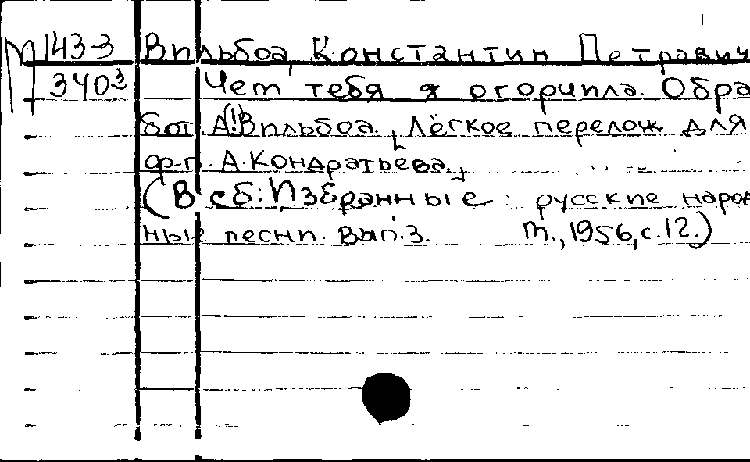 М 143-3 Вильбоа, Константин Петрович
340³ Чем тебя я огорчила. Обра
бот. А(!) Вильбоа. [Лёгкое перелож. для
ф-п. А. Кондратьева.]
(В сб: Избранные русские народ
ные песни. Вып. 3. М., 1956, с. 12.)